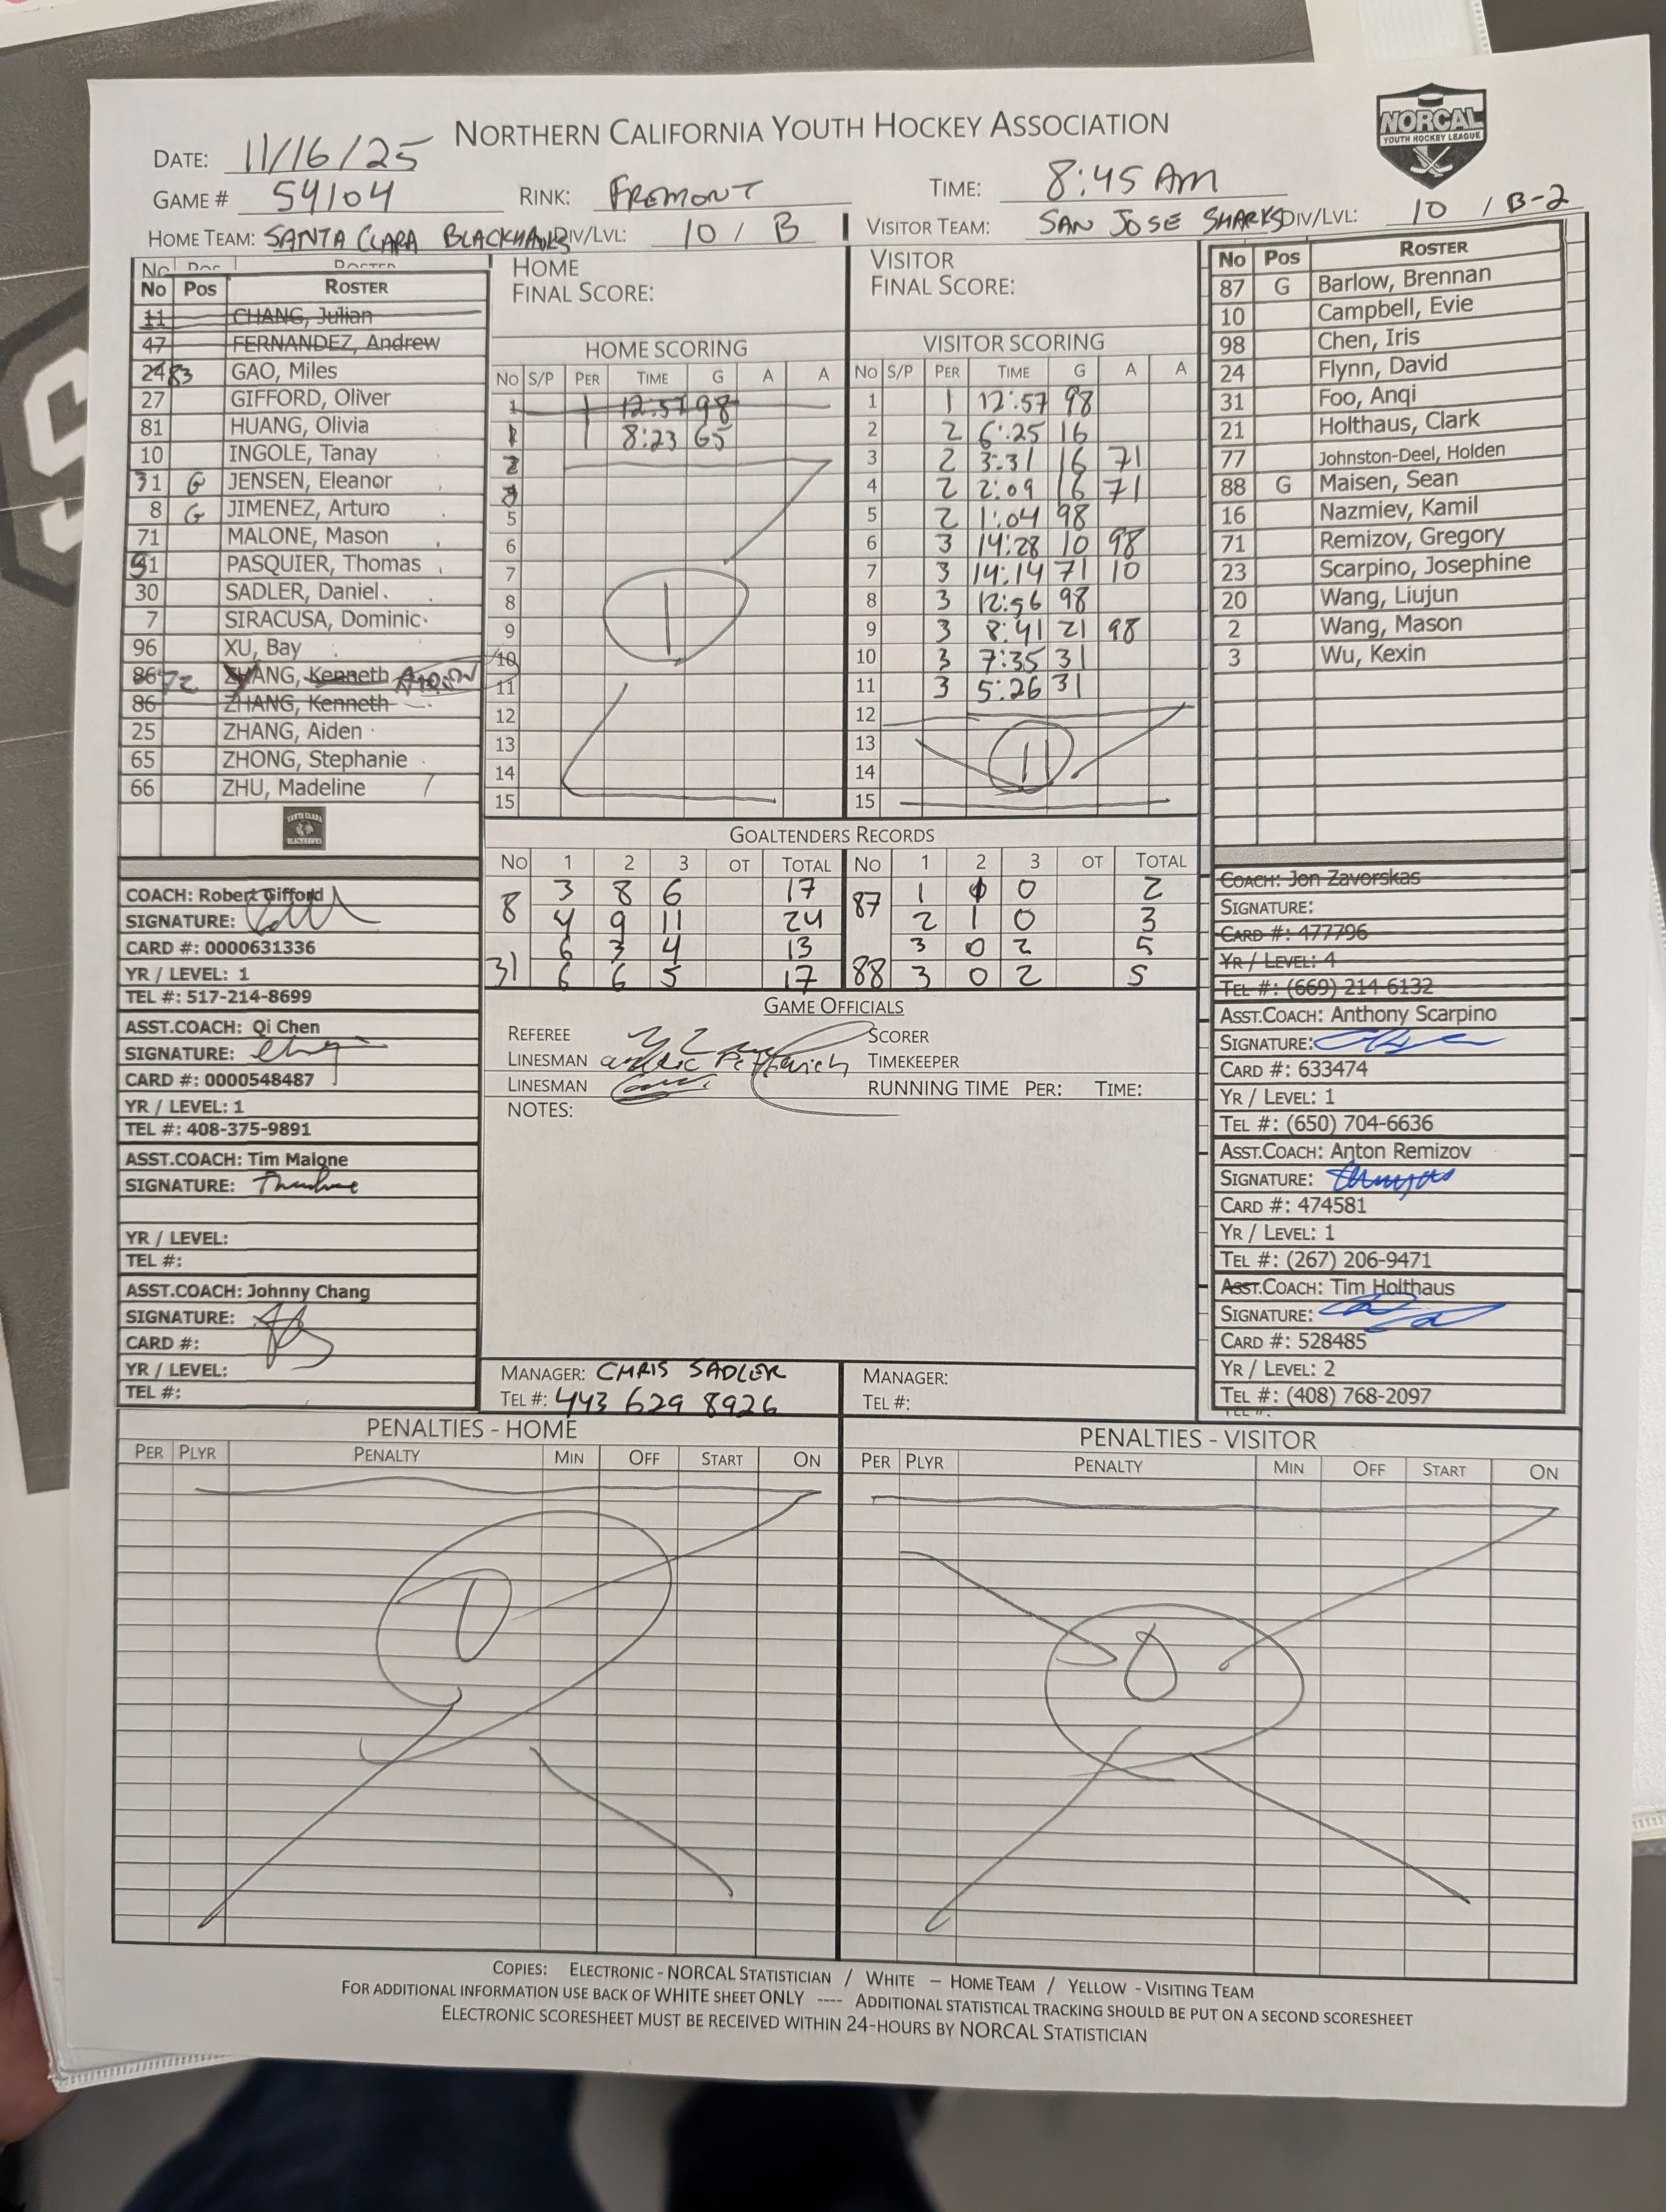 NORTHERN CALIFORNIA YOUTH HOCKEY ASSOCIATION
NORCAL
YOUTH HOCKEY LEAGUE
DATE: 11/16/25
GAME # 54104 RINK: FREMONT TIME: 8:45 AM
HOME TEAM: SANTA CLARA BLACKHAWKS DIV/LVL: 10 / B VISITOR TEAM: SAN JOSE SHARKS DIV/LVL: 10 / B-2
No Pos ROSTER
No Pos ROSTER
11 CHANG, Julian
47 FERNANDEZ, Andrew
24 83 GAO, Miles
27 GIFFORD, Oliver
81 HUANG, Olivia
10 INGOLE, Tanay
31 G JENSEN, Eleanor
8 G JIMENEZ, Arturo
71 MALONE, Mason
91 PASQUIER, Thomas
30 SADLER, Daniel
7 SIRACUSA, Dominic
96 XU, Bay
86 72 ZHANG, Kenneth
86 ZHANG, Kenneth
25 ZHANG, Aiden
65 ZHONG, Stephanie
66 ZHU, Madeline
SANTA CLARA
BLACKHAWKS
HOME
FINAL SCORE:
HOME SCORING
No S/P PER TIME G A A
1 1 12:57 98
1 1 8:23 65
2
3
5
6
7
8
9
10
11
12
13
14
15
1
VISITOR
FINAL SCORE:
VISITOR SCORING
No S/P PER TIME G A A
1 1 12:57 98
2 2 6:25 16
3 2 3:31 16 71
4 2 2:09 16 71
5 2 1:04 98
6 3 14:28 10 98
7 3 14:14 71 10
8 3 12:56 98
9 3 8:41 21 98
10 3 7:35 31
11 3 5:26 31
12
13
14
15
11
No Pos ROSTER
87 G Barlow, Brennan
10 Campbell, Evie
98 Chen, Iris
24 Flynn, David
31 Foo, Anqi
21 Holthaus, Clark
77 Johnston-Deel, Holden
88 G Maisen, Sean
16 Nazmiev, Kamil
71 Remizov, Gregory
23 Scarpino, Josephine
20 Wang, Liujun
2 Wang, Mason
3 Wu, Kexin
GOALTENDERS RECORDS
No 1 2 3 OT TOTAL No 1 2 3 OT TOTAL
8 3 8 6 17 87 1 0 2
4 9 11 24 2 1 0 3
31 6 3 4 13 88 3 0 2 5
6 6 5 17 3 0 2 5
COACH: Robert Gifford
SIGNATURE:
CARD #: 0000631336
YR / LEVEL: 1
TEL #: 517-214-8699
ASST.COACH: Qi Chen
SIGNATURE:
CARD #: 0000548487
YR / LEVEL: 1
TEL #: 408-375-9891
ASST.COACH: Tim Malone
SIGNATURE:
YR / LEVEL:
TEL #:
ASST.COACH: Johnny Chang
SIGNATURE:
CARD #:
YR / LEVEL:
TEL #:
GAME OFFICIALS
REFEREE SCORER
LINESMAN TIMEKEEPER
LINESMAN RUNNING TIME PER: TIME:
NOTES:
MANAGER: CHRIS SADLER
TEL #: 443 629 8926
MANAGER:
TEL #:
COACH: Jon Zavorskas
SIGNATURE:
CARD #: 477796
YR / LEVEL: 4
TEL #: (669) 214-6132
ASST.COACH: Anthony Scarpino
SIGNATURE:
CARD #: 633474
YR / LEVEL: 1
TEL #: (650) 704-6636
ASST.COACH: Anton Remizov
SIGNATURE:
CARD #: 474581
YR / LEVEL: 1
TEL #: (267) 206-9471
ASST.COACH: Tim Holthaus
SIGNATURE:
CARD #: 528485
YR / LEVEL: 2
TEL #: (408) 768-2097
TEL #:
PENALTIES - HOME
PER PLYR PENALTY MIN OFF START ON
0
PENALTIES - VISITOR
PER PLYR PENALTY MIN OFF START ON
0
COPIES: ELECTRONIC - NORCAL STATISTICIAN / WHITE – HOME TEAM / YELLOW - VISITING TEAM
FOR ADDITIONAL INFORMATION USE BACK OF WHITE SHEET ONLY ---- ADDITIONAL STATISTICAL TRACKING SHOULD BE PUT ON A SECOND SCORESHEET
ELECTRONIC SCORESHEET MUST BE RECEIVED WITHIN 24-HOURS BY NORCAL STATISTICIAN